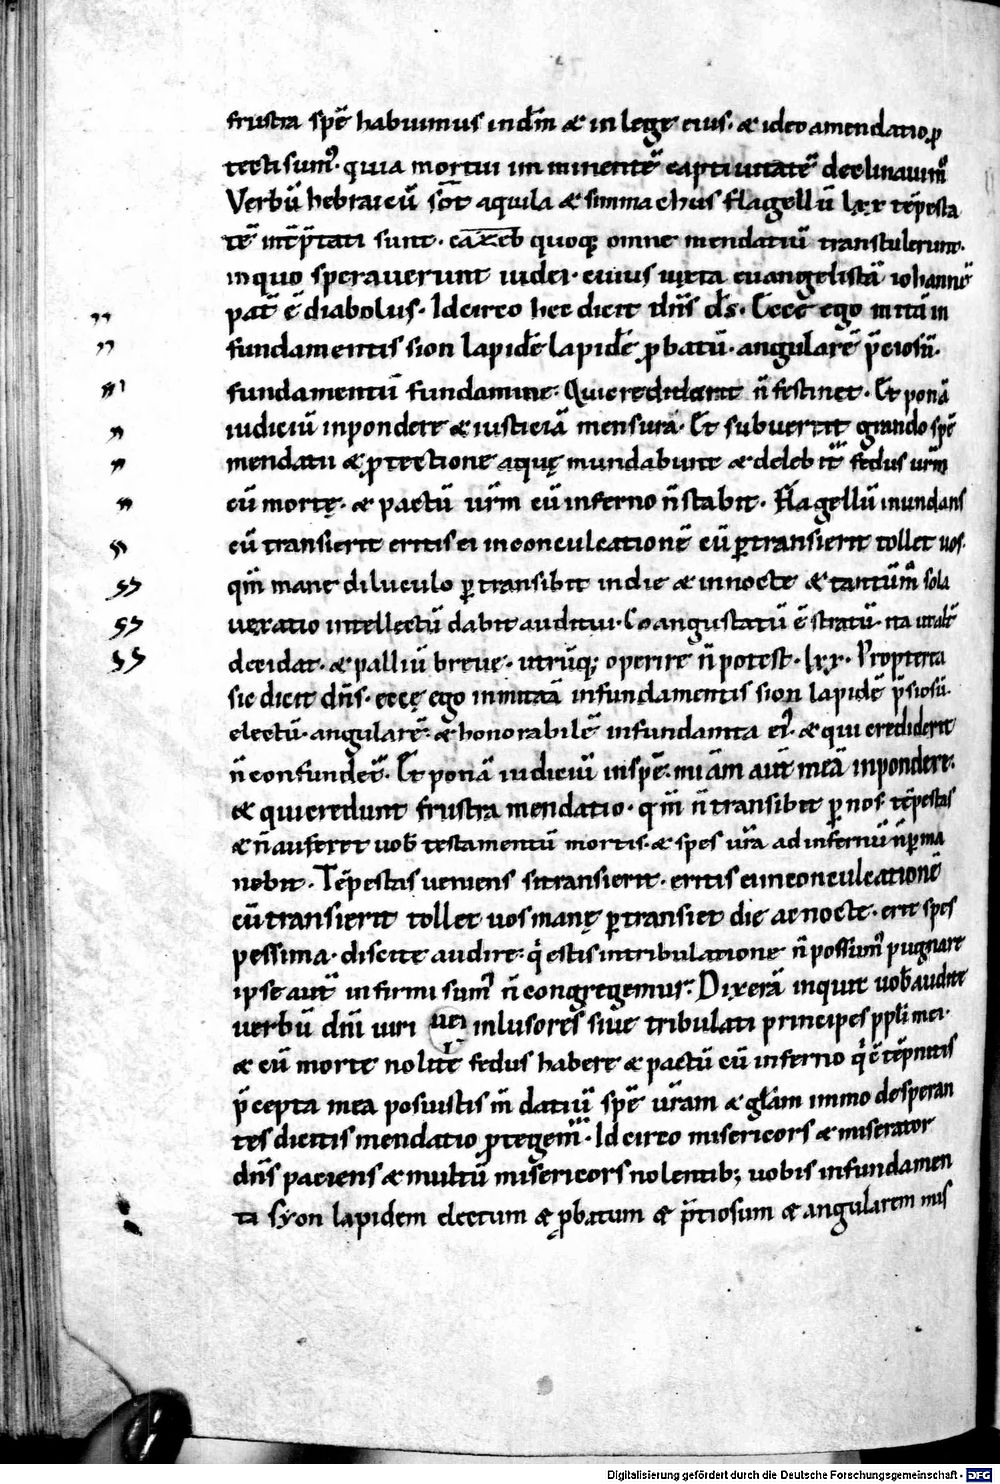 frustra spē habuimus indm̄ & in lege eius. & ideo a mendatio ꝓ
tecti sumꝰ. quia mortui imminentē captiuitatē declinauimꝰ
Verbū hebraicū sot aquila & simmachus flagellū lxx tēpesta
tē int̄p̄tati sunt. cazeb quoq; omne mendatiū transtulerunt.
in quo sperauerunt iudei. cuius iuxta euangelistā iohannē
pat̄ ē diabolus. Idcirco hec dicit dn̄s ds̄. Ecce ego mittā in
fundamentis sion lapidē lapidē ꝓbatū. angularē p̄ciosū.
fundamentū fundamine. Qui crediderit n̄ festinet. Et ponā
iudiciū in pondere & iusticiā mensurā. Et subuertit grando spē
mendatii & ꝓtectione aquę mundabunt & delebit̄ fedus ur̄m
cū mortę. & pactū ur̄m cū inferno n̄ stabit. Flagellū inundans
cū transierit eritis ei in conculcationē cū ꝑtransierit tollet uos.
qm̄ mane diluculo ꝑtransibit in die & in nocte & tantūm̄ sola
uexatio intellectū dabit auditui. Coangustatū ē stratū. ita ut alt̄
decidat. & palliū breue. utrūq; operire n̄ potest. lxx. Propterea
sic dicit dn̄s. eccę ego inmittā in fundamentis sion lapidē p̄siosū.
electū. angularē. & honorabilē in fundamta eiꝰ. & qui crediderit
n̄ confundet̄. Et ponā iudiciū in spē. mīam aut̄ meā in pondere.
& qui credunt frustra mendatio. qm̄ n̄ transibit ꝑ nos tēpestas
& n̄ auferet uob̄ testamentū mortis. & spes ur̄a ad infernū n̄ ꝑma
nebit. Tēpestas ueniens si transierit. eritis ei in conculcationē
cū transierit tollet uos manę ꝑtransiet die ac nocte. erit spes
pessima. discite audire. qͥ estis in tribulatione n̄ possumꝰ pugnare
ipse aut̄ infirmi sumꝰ n̄ congregemur. Dixerā inquit uob̄ audite
uerbū dn̄i uiri uei inlusores siue tribulati principes ppl̄i mei.
& cū morte nolite fedus habere & pactū cū inferno qͥ ctēpnitis
p̄cepta mea posuistis m̄datiū spē ur̄am & gl̄am immo desperan
tes dicitis mendatio ꝓtegem̄. Idcirco misericors & miserator
dn̄s paciens & multū misericors nolentib; uobis in fundamen
ta syon lapidem electum & ꝓbatum & p̄tiosum & angularem mis
Digitalisierung gefördert durch die Deutsche Forschungsgemeinschaft - DFG